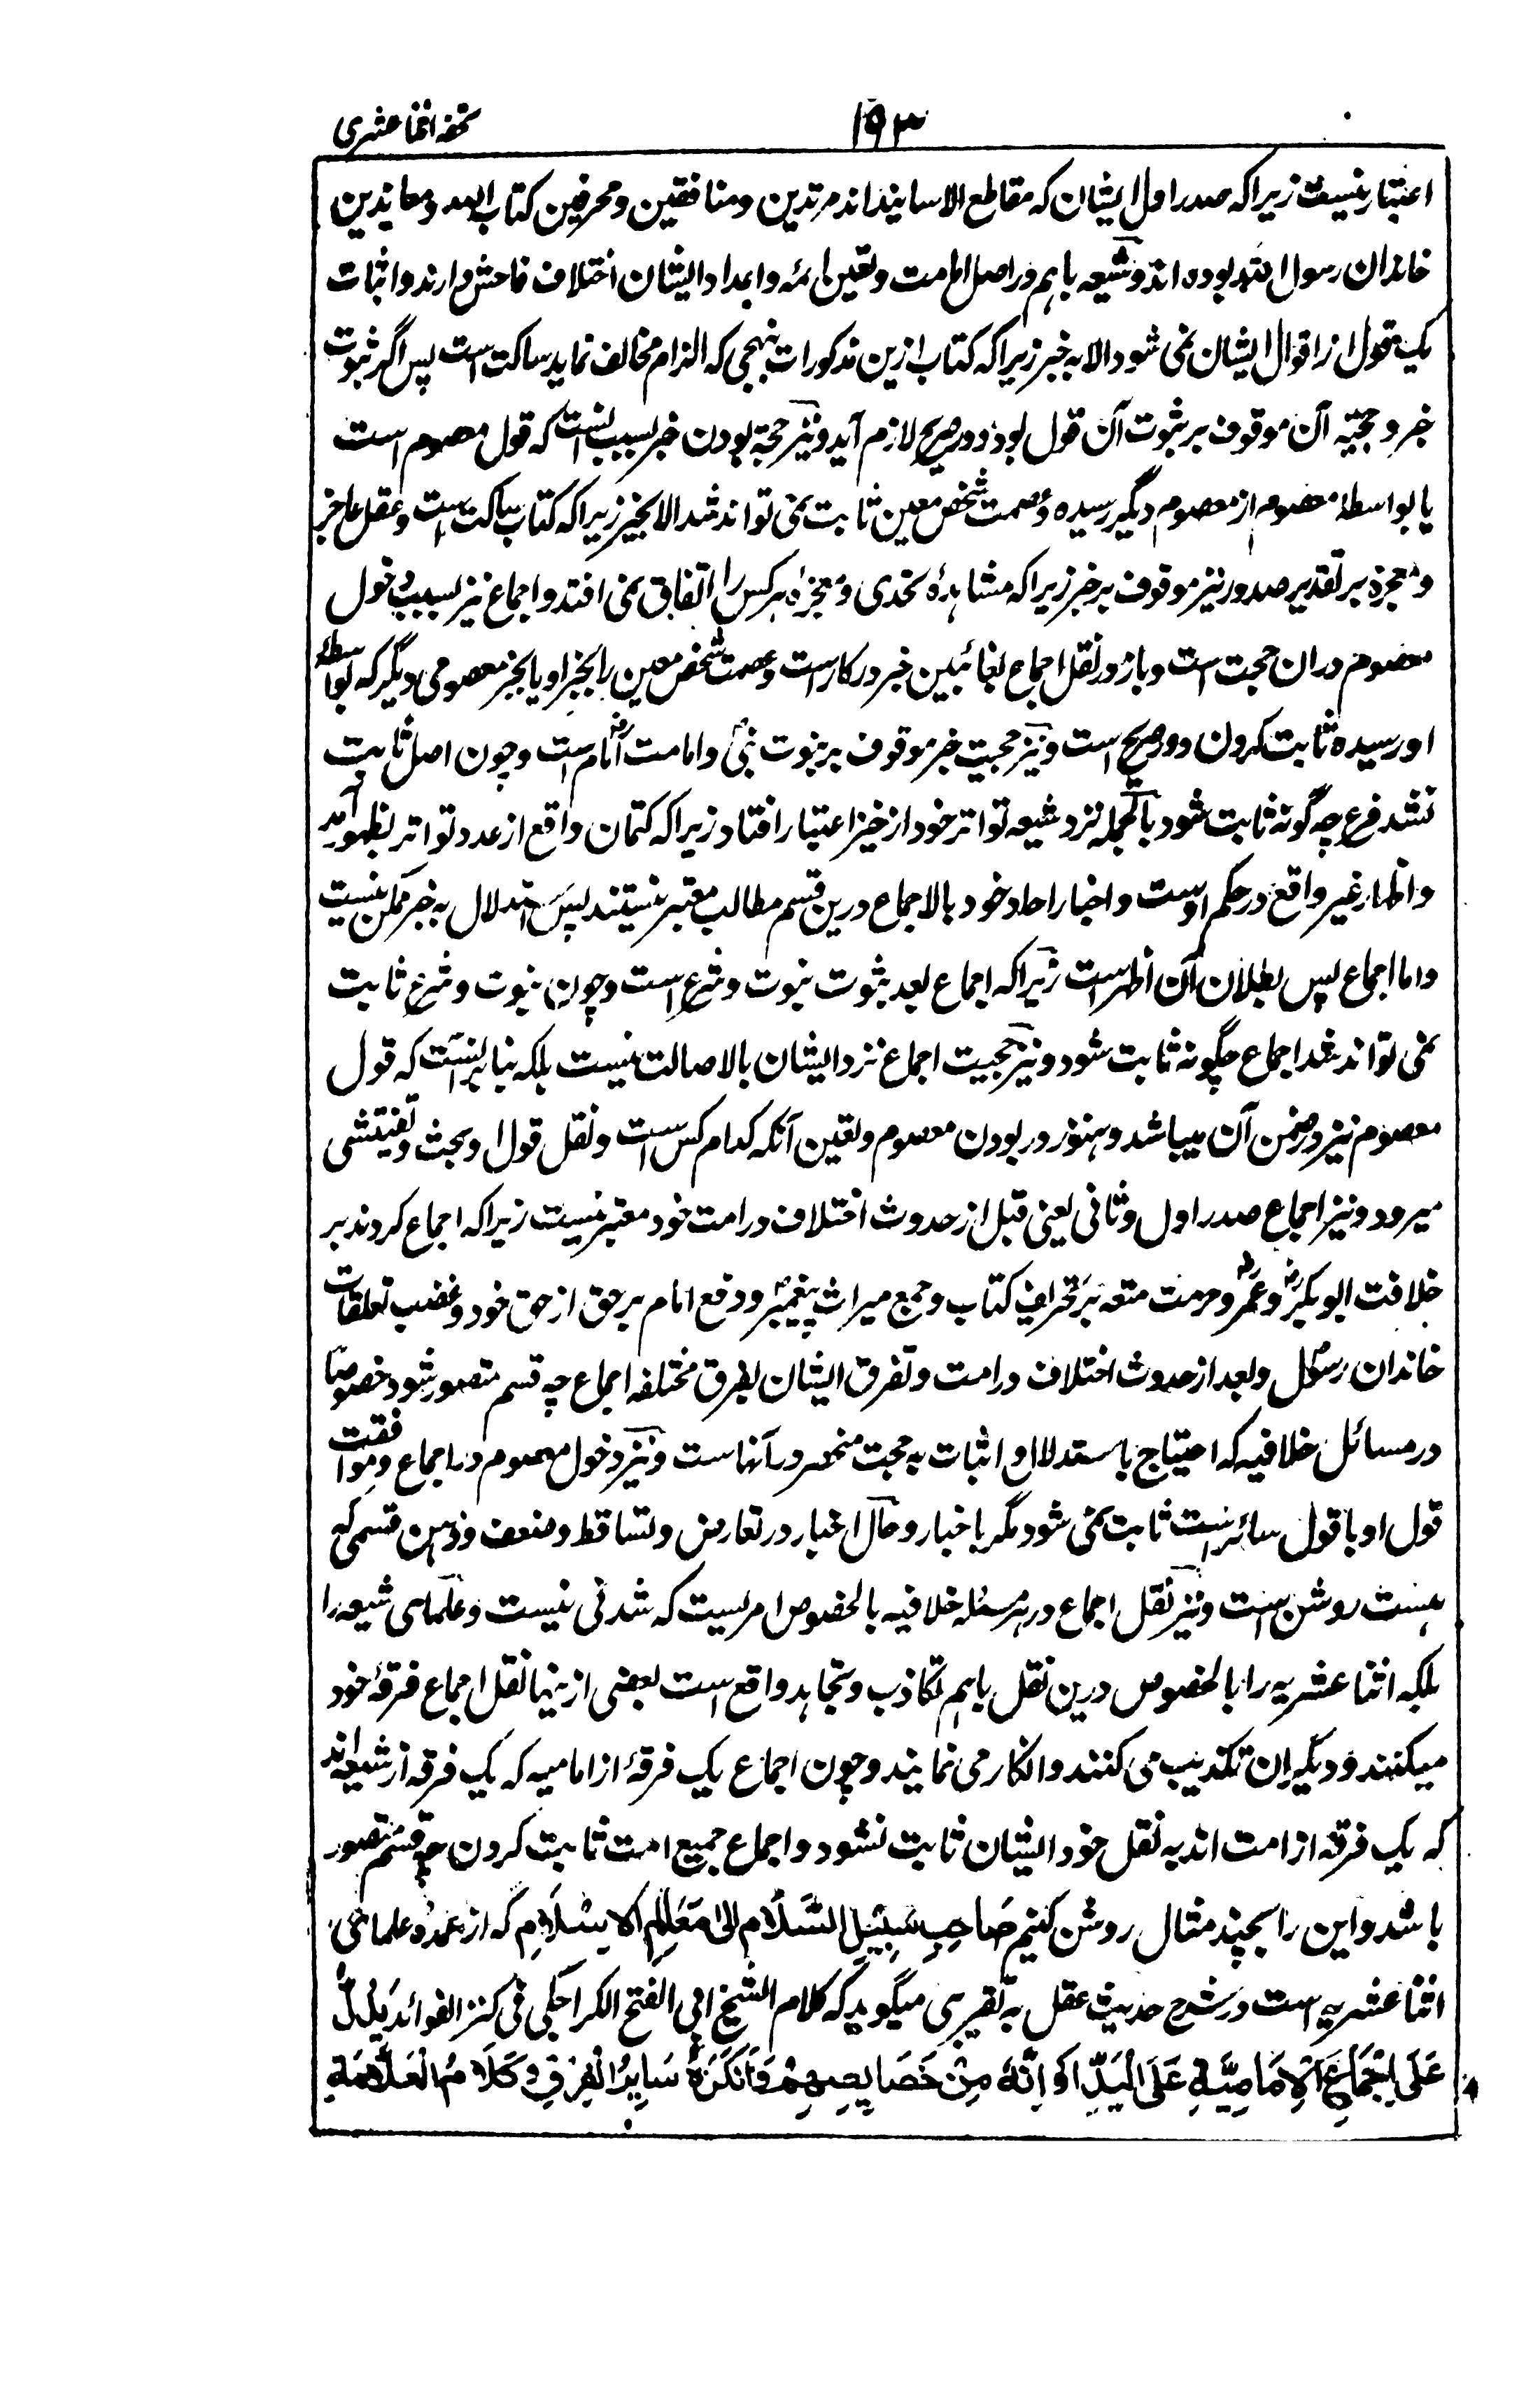 تحفه اثنا عشری
۱۹۳
اعتبار نیست زیرا که صدر اول ایشان که مقاطع الاسانیداند مرتدین و منافقین و محرفین کتاب الله و معاندین
خاندان رسول الله بوده اند و شیعه باهم در اصل امامت و تعین ائمه و اعداد ایشان اختلاف فاحش دارند و اثبات
یک قول از اقوال ایشان نمی شود الا به خبر زیرا که کتاب ازین مذکورات بنهجی که الزام مخالف نماید ساکت است پس اگر ثبوت
خبر و حجیّه آن موقوف بر ثبوت آن قول بود دور صریح لازم آید و نیز حجّة بودن خبر بسبب آنست که قول معصوم است
یا بواسطۀ معصوم از معصوم دیگر رسیده و عصمت شخص معین ثابت نمی تواند شد الا بخبر زیرا که کتاب ساکت است و عقل عاجز
و معجزه بر تقدیر صدور نیز موقوف بر خبر زیرا که مشاهدۀ تحدی و معجزه هر کس را اتفاق نمی افتد و اجماع نیز بسبب دخول
معصوم دران حجت است و باز در نقل اجماع بغائبین خبر درکار است و عصمت شخص معین را بخبر او یا بخبر معصومی دیگر که بواسطۀ
او رسیده ثابت کردن دور صریح است و نیز حجیت خبر موقوف بر نبوت نبی و امامت امام است و چون اصل ثابت
نشد فرع چه گونه ثابت شود بالجمله نزد شیعه تواتر خود از حیز اعتبار افتاد زیرا که کتمان واقع از عدد تواتر بظهور آمد
و اظهار غیر واقع در حکم اوست و اخبار احاد خود بالاجماع درین قسم مطالب معتبر نیستند پس استدلال به خبر ممکن نیست
و اما اجماع پس بطلان آن اظهر است زیرا که اجماع بعد ثبوت نبوت و شرع است و چون نبوت و شرع ثابت
نمی تواند شد اجماع چگونه ثابت شود و نیز حجیت اجماع نزد ایشان بالاصالت نیست بلکه بنا بر آنست که قول
معصوم نیز در ضمن آن میباشد و هنوز در بودن معصوم و تعین آنکه کدام کس است و نقل قول او بحث و تفتیشی
میرود و نیز اجماع صدر اول و ثانی یعنی قبل از حدوث اختلاف در امت خود معتبر نیست زیرا که اجماع کردند بر
خلافت ابوبکر و عمر و حرمت متعه بر تحریف کتاب و جمع میراث پیغمبر و دفع امام بر حق از حق خود و غضب تعلقات
خاندان رسول و بعد از حدوث اختلاف در امت و تفرق ایشان بفرق مختلفه اجماع چه قسم متصور شود خصوصا
در مسائل خلافیه که احتیاج باستدلال و اثبات به حجت منحصر در آنهاست و نیز دخول معصوم در اجماع و موافقت
قول او با قول سائر امت ثابت نمی شود مگر باخبار و حال اخبار در تعارض و تساقط و ضعف و وهن قسمی که
هست روشن است و نیز نقل اجماع در هر مسئله خلافیه بالخصوص امریست که شدنی نیست و علمای شیعه را
بلکه اثنا عشریه را بالخصوص درین نقل باهم تکاذب و تجاهد واقع است بعضی ازینها نقل اجماع فرقۀ خود
میکنند و دیگران تکذیب می کنند و انکار می نمایند و چون اجماع یک فرقۀ از امامیه که یک فرقه از شیعه اند
که یک فرقه از امت اند به نقل خود ایشان ثابت نشود و اجماع جمیع امت ثابت کردن چه قسم متصور
باشد و این را بچند مثال روشن کنیم صَاحِبِ سَبِیْلِ السَّلَام اِلیٰ مَعَالِمِ الْاِسْلَامِ که از عمدۀ علمای
اثنا عشریه است در شرح حدیث عقل به تقریبی میگوید که کلام الشیخ ابی الفتح الکراجکی فی کنز الفوائد یَدُلُّ
عَلَی اِجْمَاعِ الْاِمَامِیَّةِ عَلَی الْبَدَا وَ اِنَّهٗ مِنْ خَصَایِصِهِمْ وَ اَنْکَرَهٗ سَایِرُ الْفِرَقِ وَ کَلَامُ الْعَلَّامَةِ